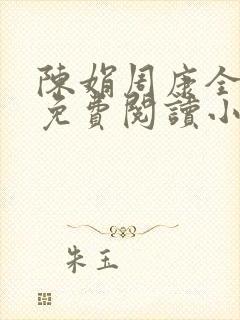 陳娟周康全
免費閱讀小
朱玉